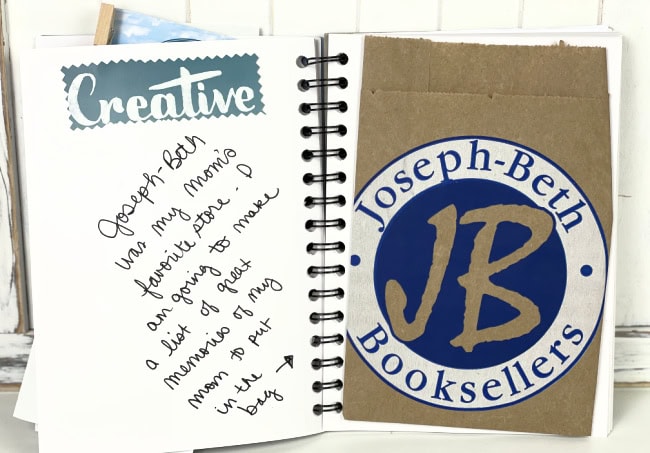 Creative
Joseph-Beth
was my mom's
favorite store - I
am going to make
a list of great
memories of my
mom to put
in the
bag →
Joseph-Beth
JB
Booksellers